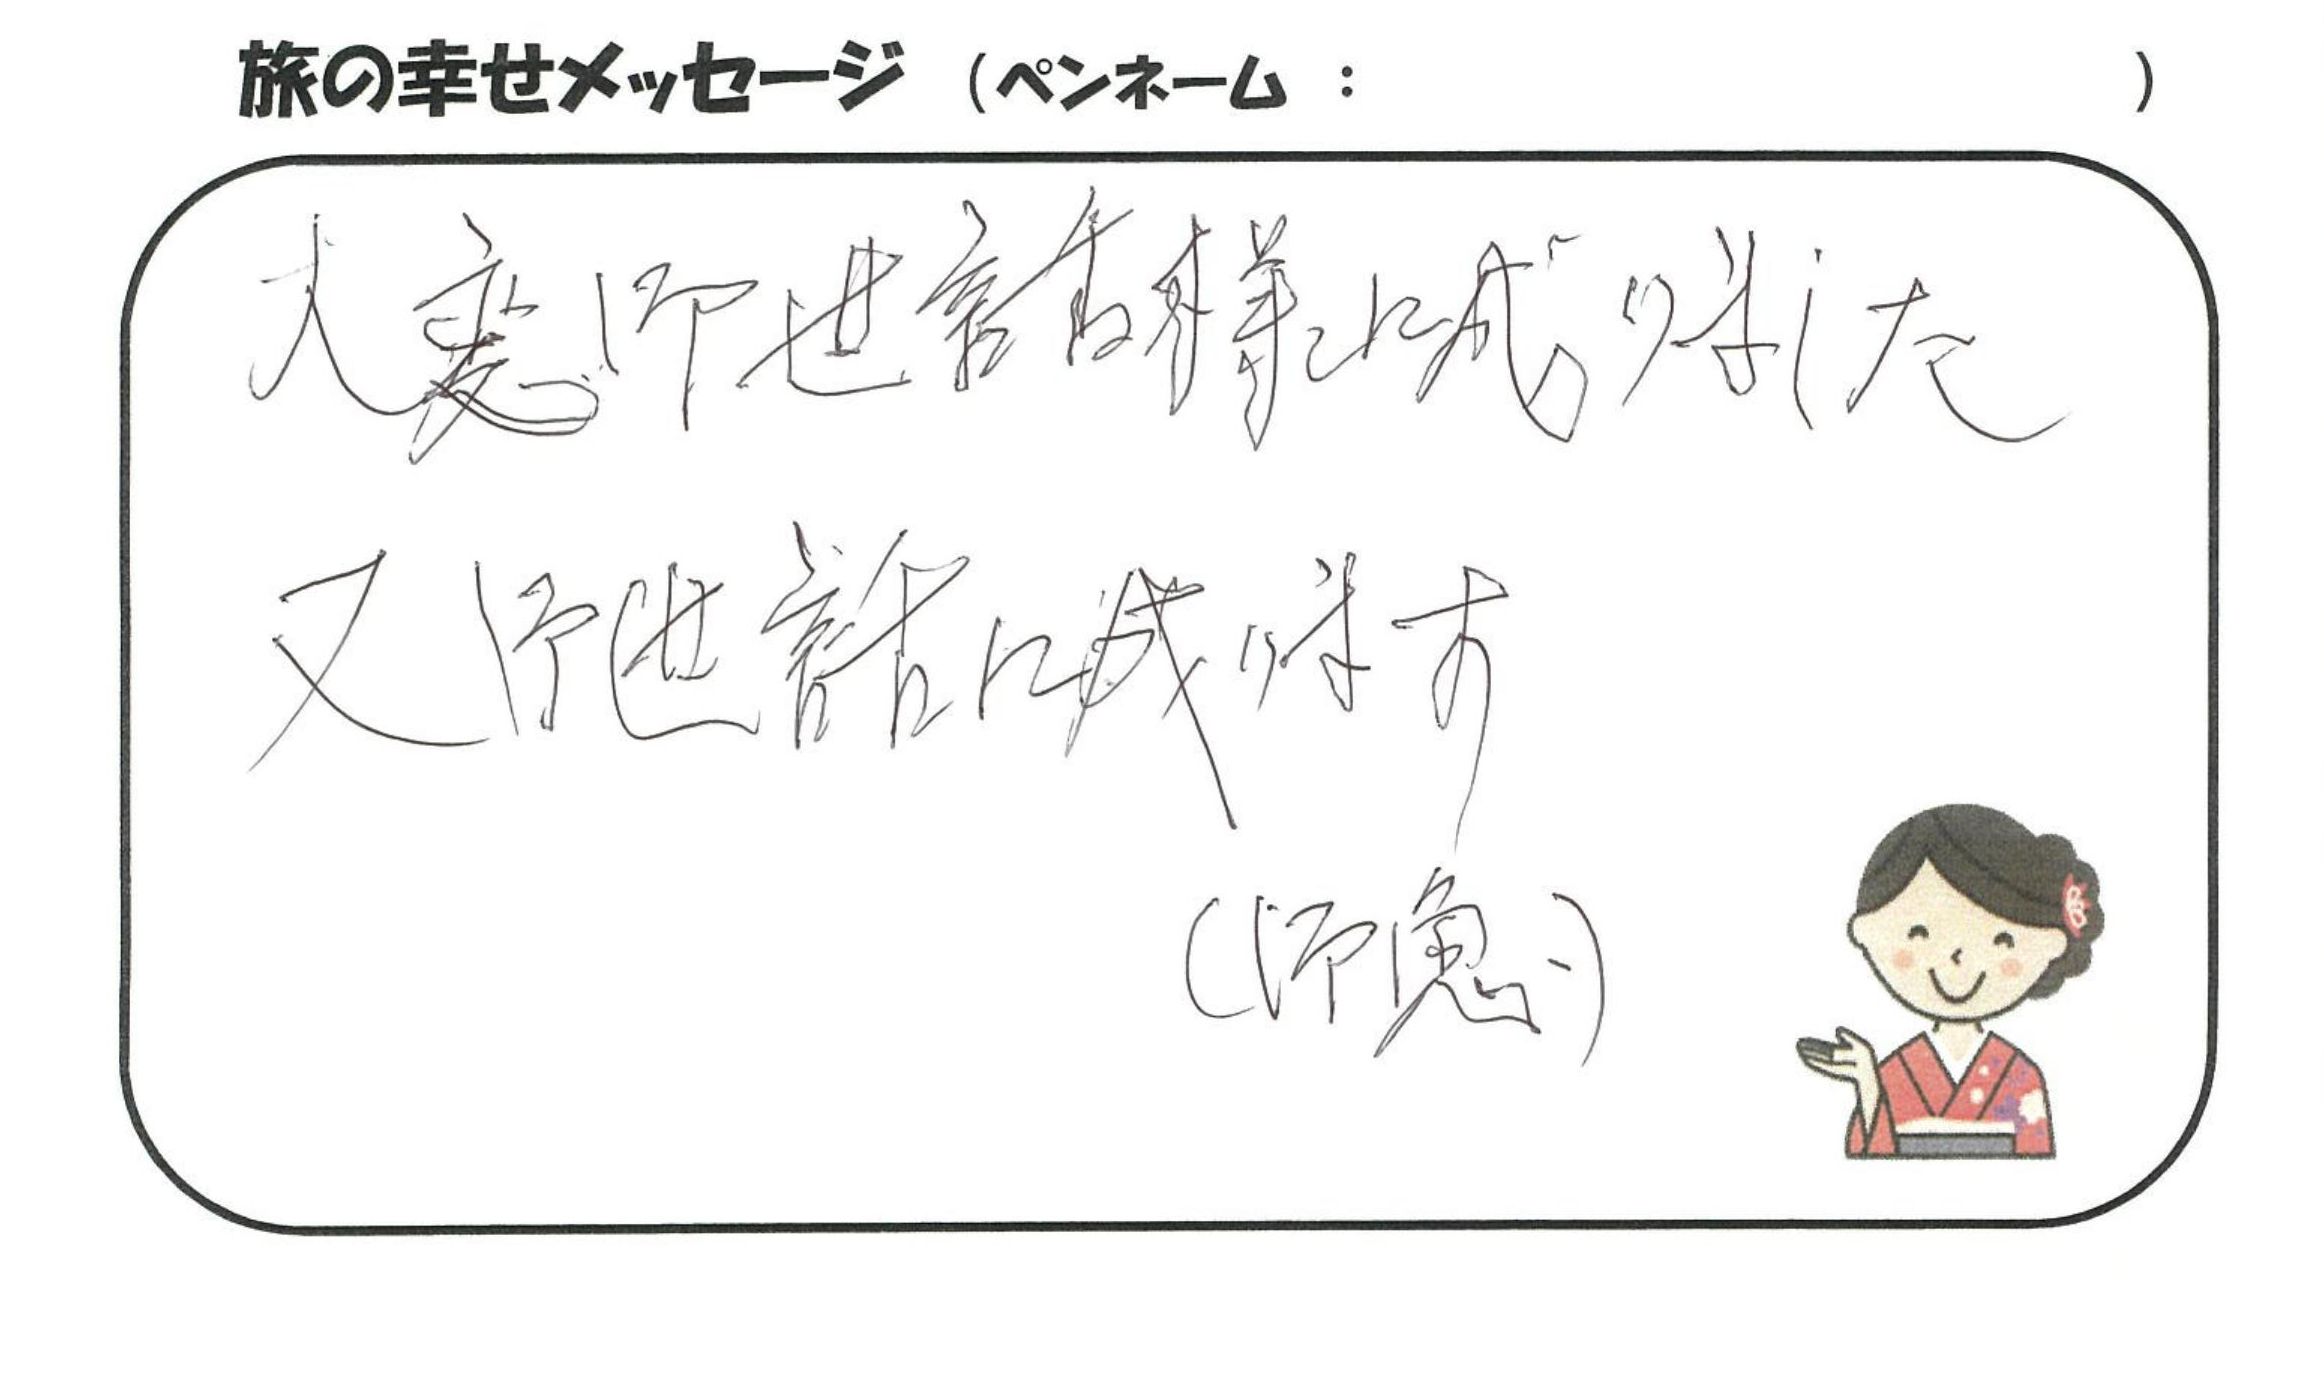 旅の幸せメッセージ (ペンネーム : )
大変御世話様に成りました
又御世話に成ります